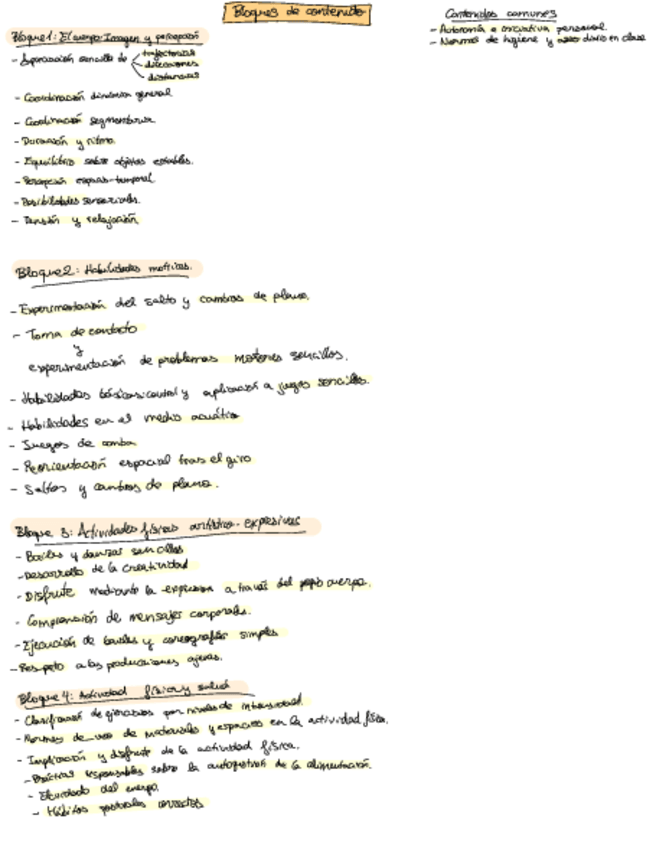 Bloques de contenido
Contenidos comunes
- Autonomía e iniciativa personal
- Normas de higiene y aseo diario en clase
Bloque 1: El cuerpo: Imagen y percepción
- Apreciación sencilla de trayectorias
direcciones
distancias
- Coordinación dinámica general
- Coordinación segmentaria
- Duración y ritmo.
- Equilibrio sobre objetos estables.
- Percepción espacio-temporal
- Posibilidades sensoriales.
- Tensión y relajación
Bloque 2: Habilidades motrices.
- Experimentación del salto y cambios de plano.
- Toma de contacto
y
experimentación de problemas motores sencillos.
- Habilidades básicas: control y aplicación a juegos sencillos.
- Habilidades en el medio acuático
- Juegos de comba
- Reorientación espacial tras el giro
- Saltos y cambios de plano.
Bloque 3: Actividades físicas artístico-expresivas
- Bailes y danzas sencillas
- Desarrollo de la creatividad
- Disfrute mediante la expresión a través del propio cuerpo.
- Comprensión de mensajes corporales.
- Ejecución de bailes y coreografías simples
- Respeto a las producciones ajenas.
Bloque 4: Actividad física y salud
- Clasificación de ejercicios por niveles de intensidad.
- Normas de uso de materiales y espacios en la actividad física.
- Implicación y disfrute de la actividad física.
- Prácticas responsables sobre la de la alimentación.
- El cuidado del cuerpo.
- Hábitos posturales correctos